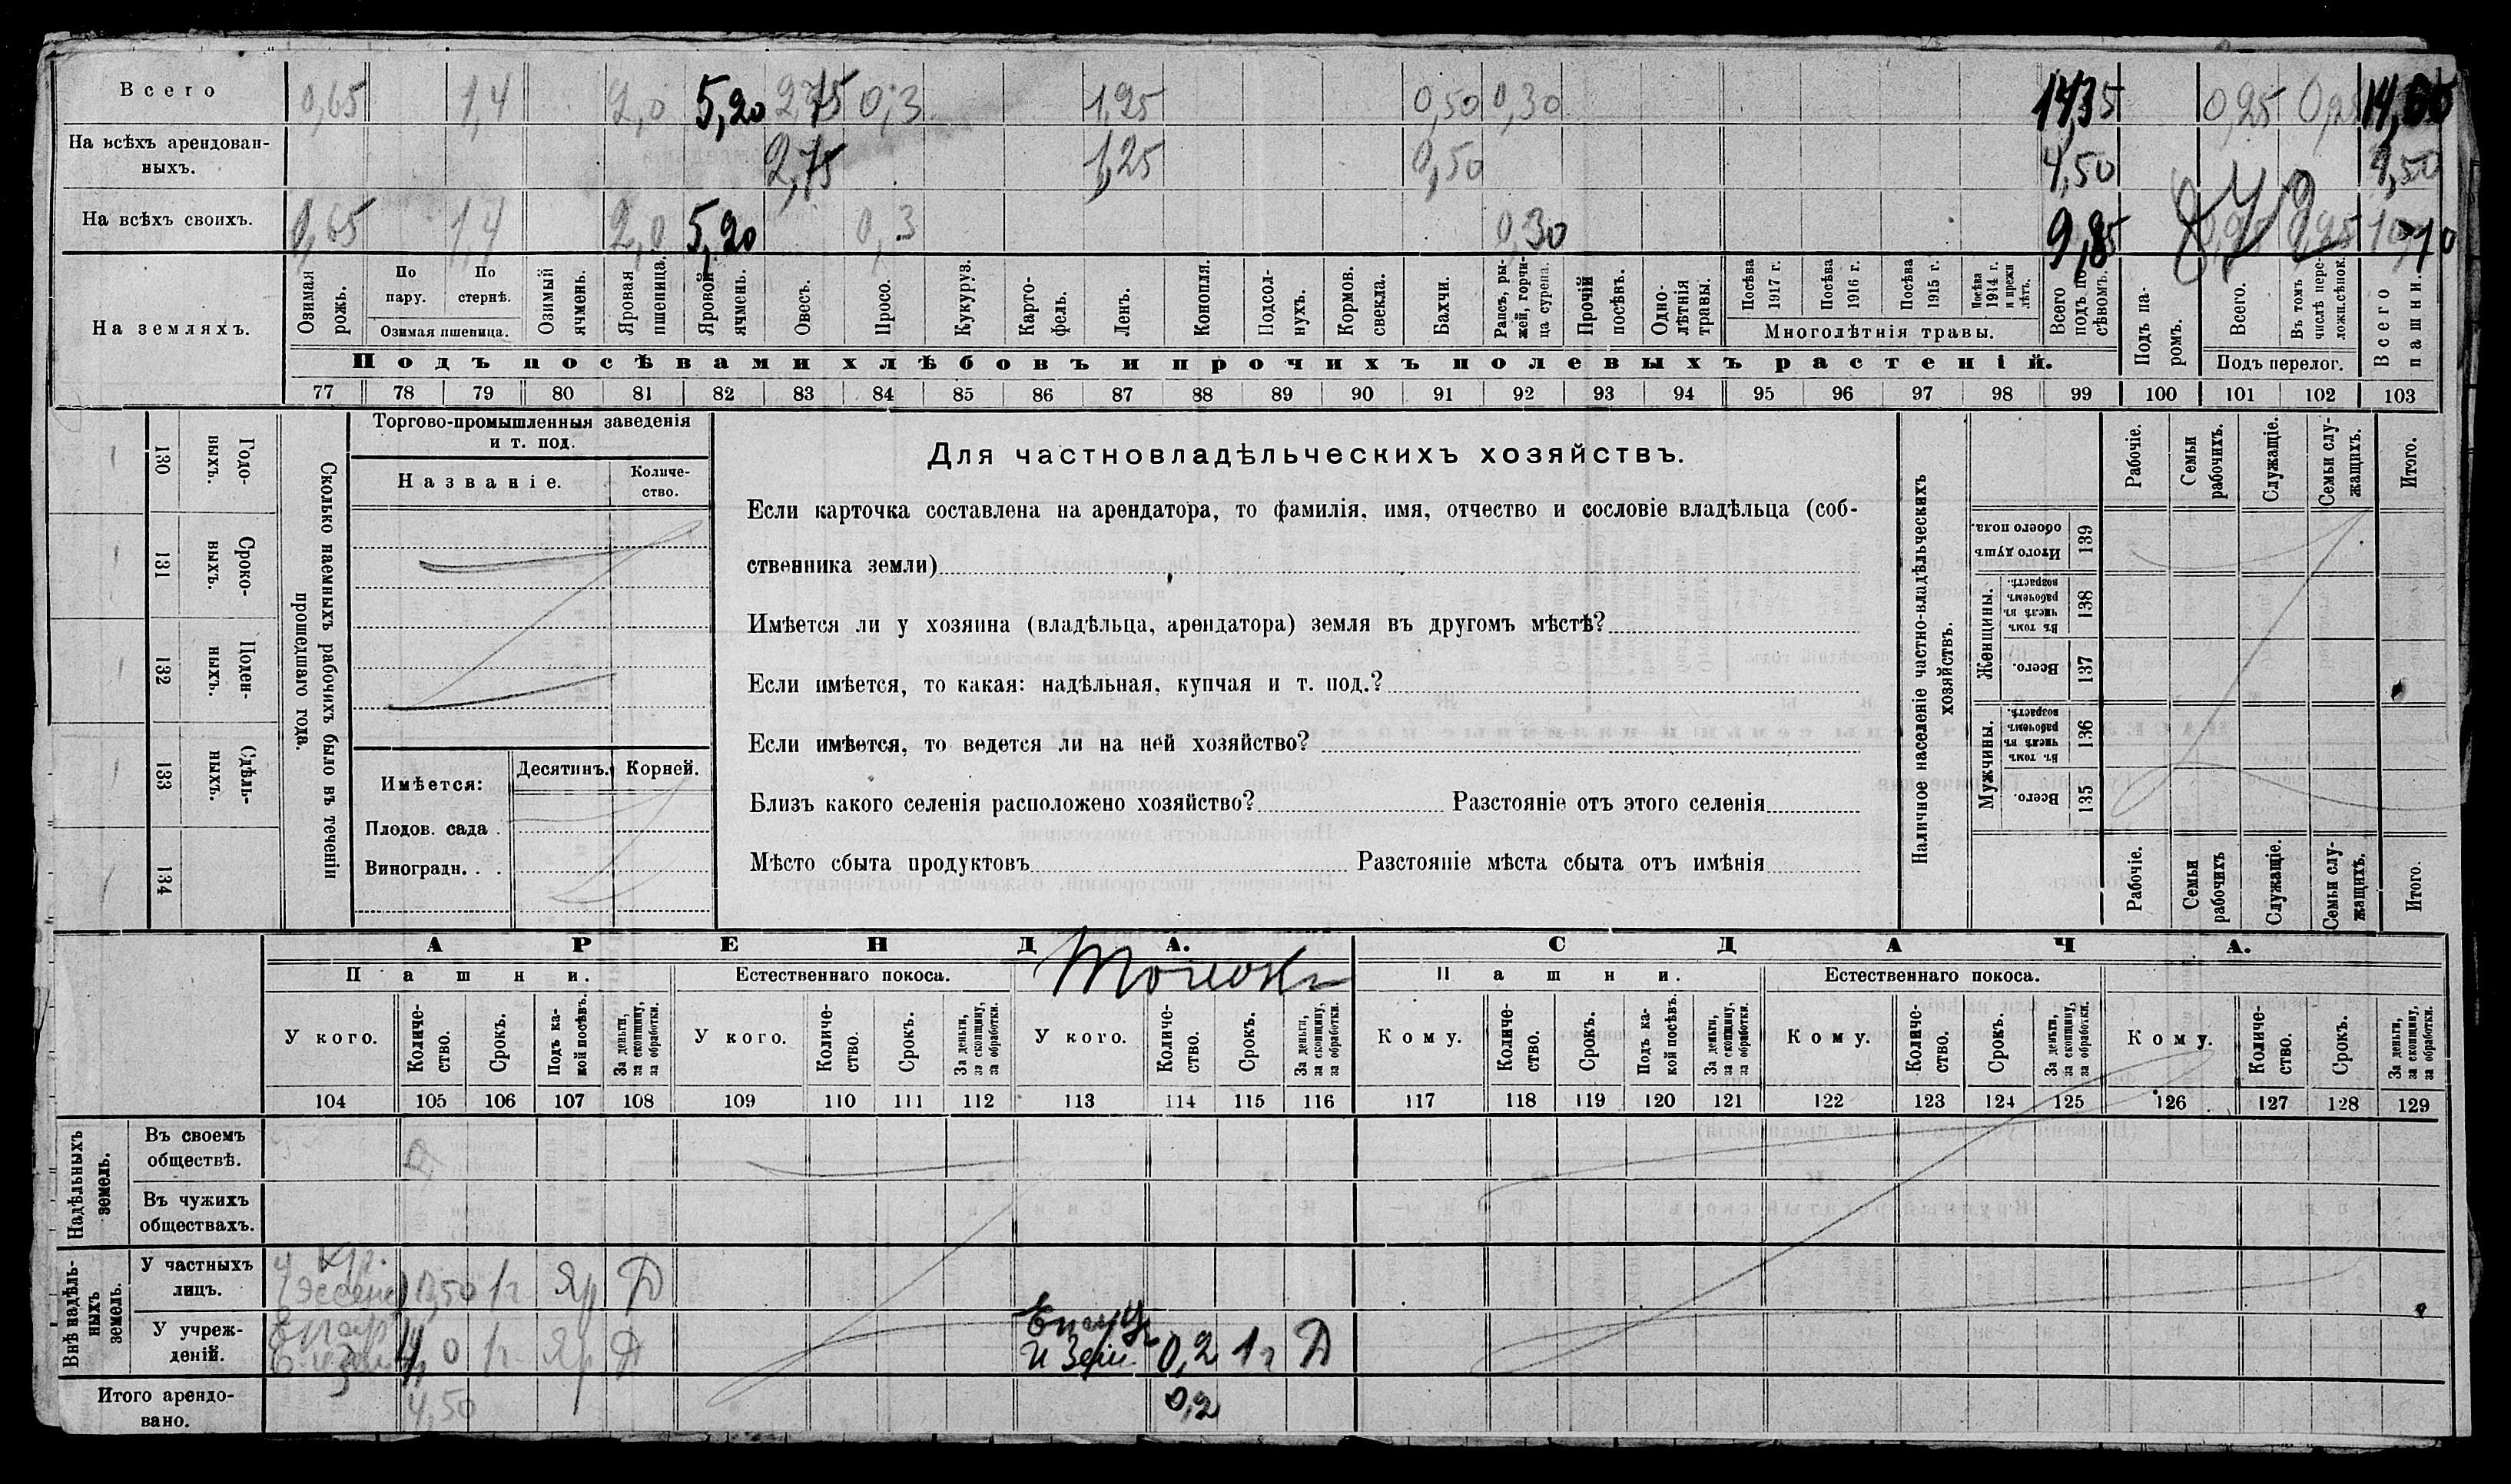 Всего 0,65 1,4 2,0 5,20 2,75 0,3 1,25 0,50 0,30 14,35 0,25 0,25
На всѣхъ арендован-
ныхъ. 2,75 1,25 0,50 4,50 4,50
На всѣхъ своихъ. 0,65 1,4 2,0 5,20 0,3 0,30 9,85
На земляхъ.
Озимая рожь.
По пару.
По стернѣ.
Озимая пшеница.
Озимый ячмень.
Яровая пшеница.
Яровой ячмень.
Овесъ.
Просо.
Кукуруз.
Карто-
фель.
Ленъ.
Конопля.
Подсол-
нухъ.
Кормов.
свекла.
Бахчи.
Рапсъ, ры-
жей, горчи-
ца сурепа.
Прочій
посѣвъ.
Одно-
лѣтнія
травы.
Посѣва
1917 г.
Посѣва
1916 г.
Посѣва
1915 г.
Посѣва
1914 г.
и прежн
лѣтъ.
Многолѣтнія травы.
Всего
подъ по-
сѣвомъ.
Подъ па-
ромъ.
Всего.
Въ томъ
числѣ пере-
ложн.сѣнок.
Подъ перелог.
Всего
пашни.
Подъ посѣвами хлѣбовъ и прочихъ полевыхъ растеній.
77 78 79 80 81 82 83 84 85 86 87 88 89 90 91 92 93 94 95 96 97 98 99 100 101 102 103
130 Годо-
выхъ.
131 Сроко-
ныхъ.
132 Поден-
ныхъ.
133 Сдѣль-
ныхъ.
134
Сколько наемныхъ рабочихъ было въ теченіи
прошедшаго года.
Торгово-промышленныя заведенія
и т. под.
Названіе.
Количе-
ство.
Имѣется:
Десятинъ. Корней.
Плодов. сада .
Виноградн. . .
Для частновладѣльческихъ хозяйствъ.
Если карточка составлена на арендатора, то фамилія, имя, отчество и сословіе владѣльца (соб-
ственника земли)
Имѣется ли у хозяина (владѣльца, арендатора) земля въ другомъ мѣстѣ?
Если имѣется, то какая: надѣльная, купчая и т. под.?
Если имѣется, то ведется ли на ней хозяйство?
Близъ какого селенія расположено хозяйство? Разстояніе отъ этого селенія
Мѣсто сбыта продуктовъ Разстояніе мѣста сбыта отъ имѣнія
Наличное населеніе частно-владѣльческихъ
хозяйствъ.
Рабочіе.
Семьи
рабочихъ.
Служащіе.
Семьи слу-
жащихъ.
Итого.
Итого душъ
обоего пола.
139
Женщины.
Въ томъ
числѣ въ
рабочемъ
возрастѣ.
138
Всего.
137
Мужчины.
Въ томъ
числѣ въ
рабочемъ
возрастѣ.
136
Всего.
135
Рабочіе.
Семьи
рабочихъ
Служащіе.
Семьи слу-
жащихъ.
Итого.
АРЕНДА. СДАЧА.
Пашни. Естественнаго покоса. Пашни. Естественнаго покоса.
У кого.
Количе-
ство.
Срокъ.
Подъ ка-
кой посѣвъ.
За деньги,
за скопщину,
за обработки.
У кого.
Количе-
ство.
Срокъ.
За деньги,
за скопщину,
за обработки.
У кого.
Количе-
ство.
Срокъ.
За деньги,
за скопщину,
за обработки.
Кому.
Количе-
ство.
Срокъ.
Подъ ка-
кой посѣвъ.
За деньги,
за скопщину,
за обработки.
Кому.
Количе-
ство.
Срокъ.
За деньги,
за скопщину,
за обработки.
Кому.
Количе-
ство.
Срокъ.
За деньги,
за скопщину,
за обработки.
104 105 106 107 108 109 110 111 112 113 114 115 116 117 118 119 120 121 122 123 124 125 126 127 128 129
Надѣльныхъ
земель.
Въ своемъ
обществѣ.
Въ чужихъ
обществахъ.
Внѣ надѣль-
ныхъ
земель.
У частныхъ
лицъ. 0,50 1 г Яр Д
У учреж-
деній. 4,0 1 г Яр Д 0,2 1 г Д
Итого арендо-
вано. 4,50 0,2